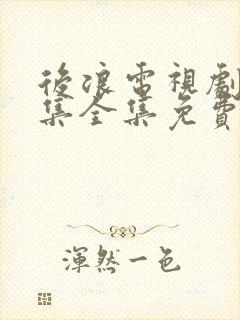 後浪電視劇
集全集免費
渾然一色